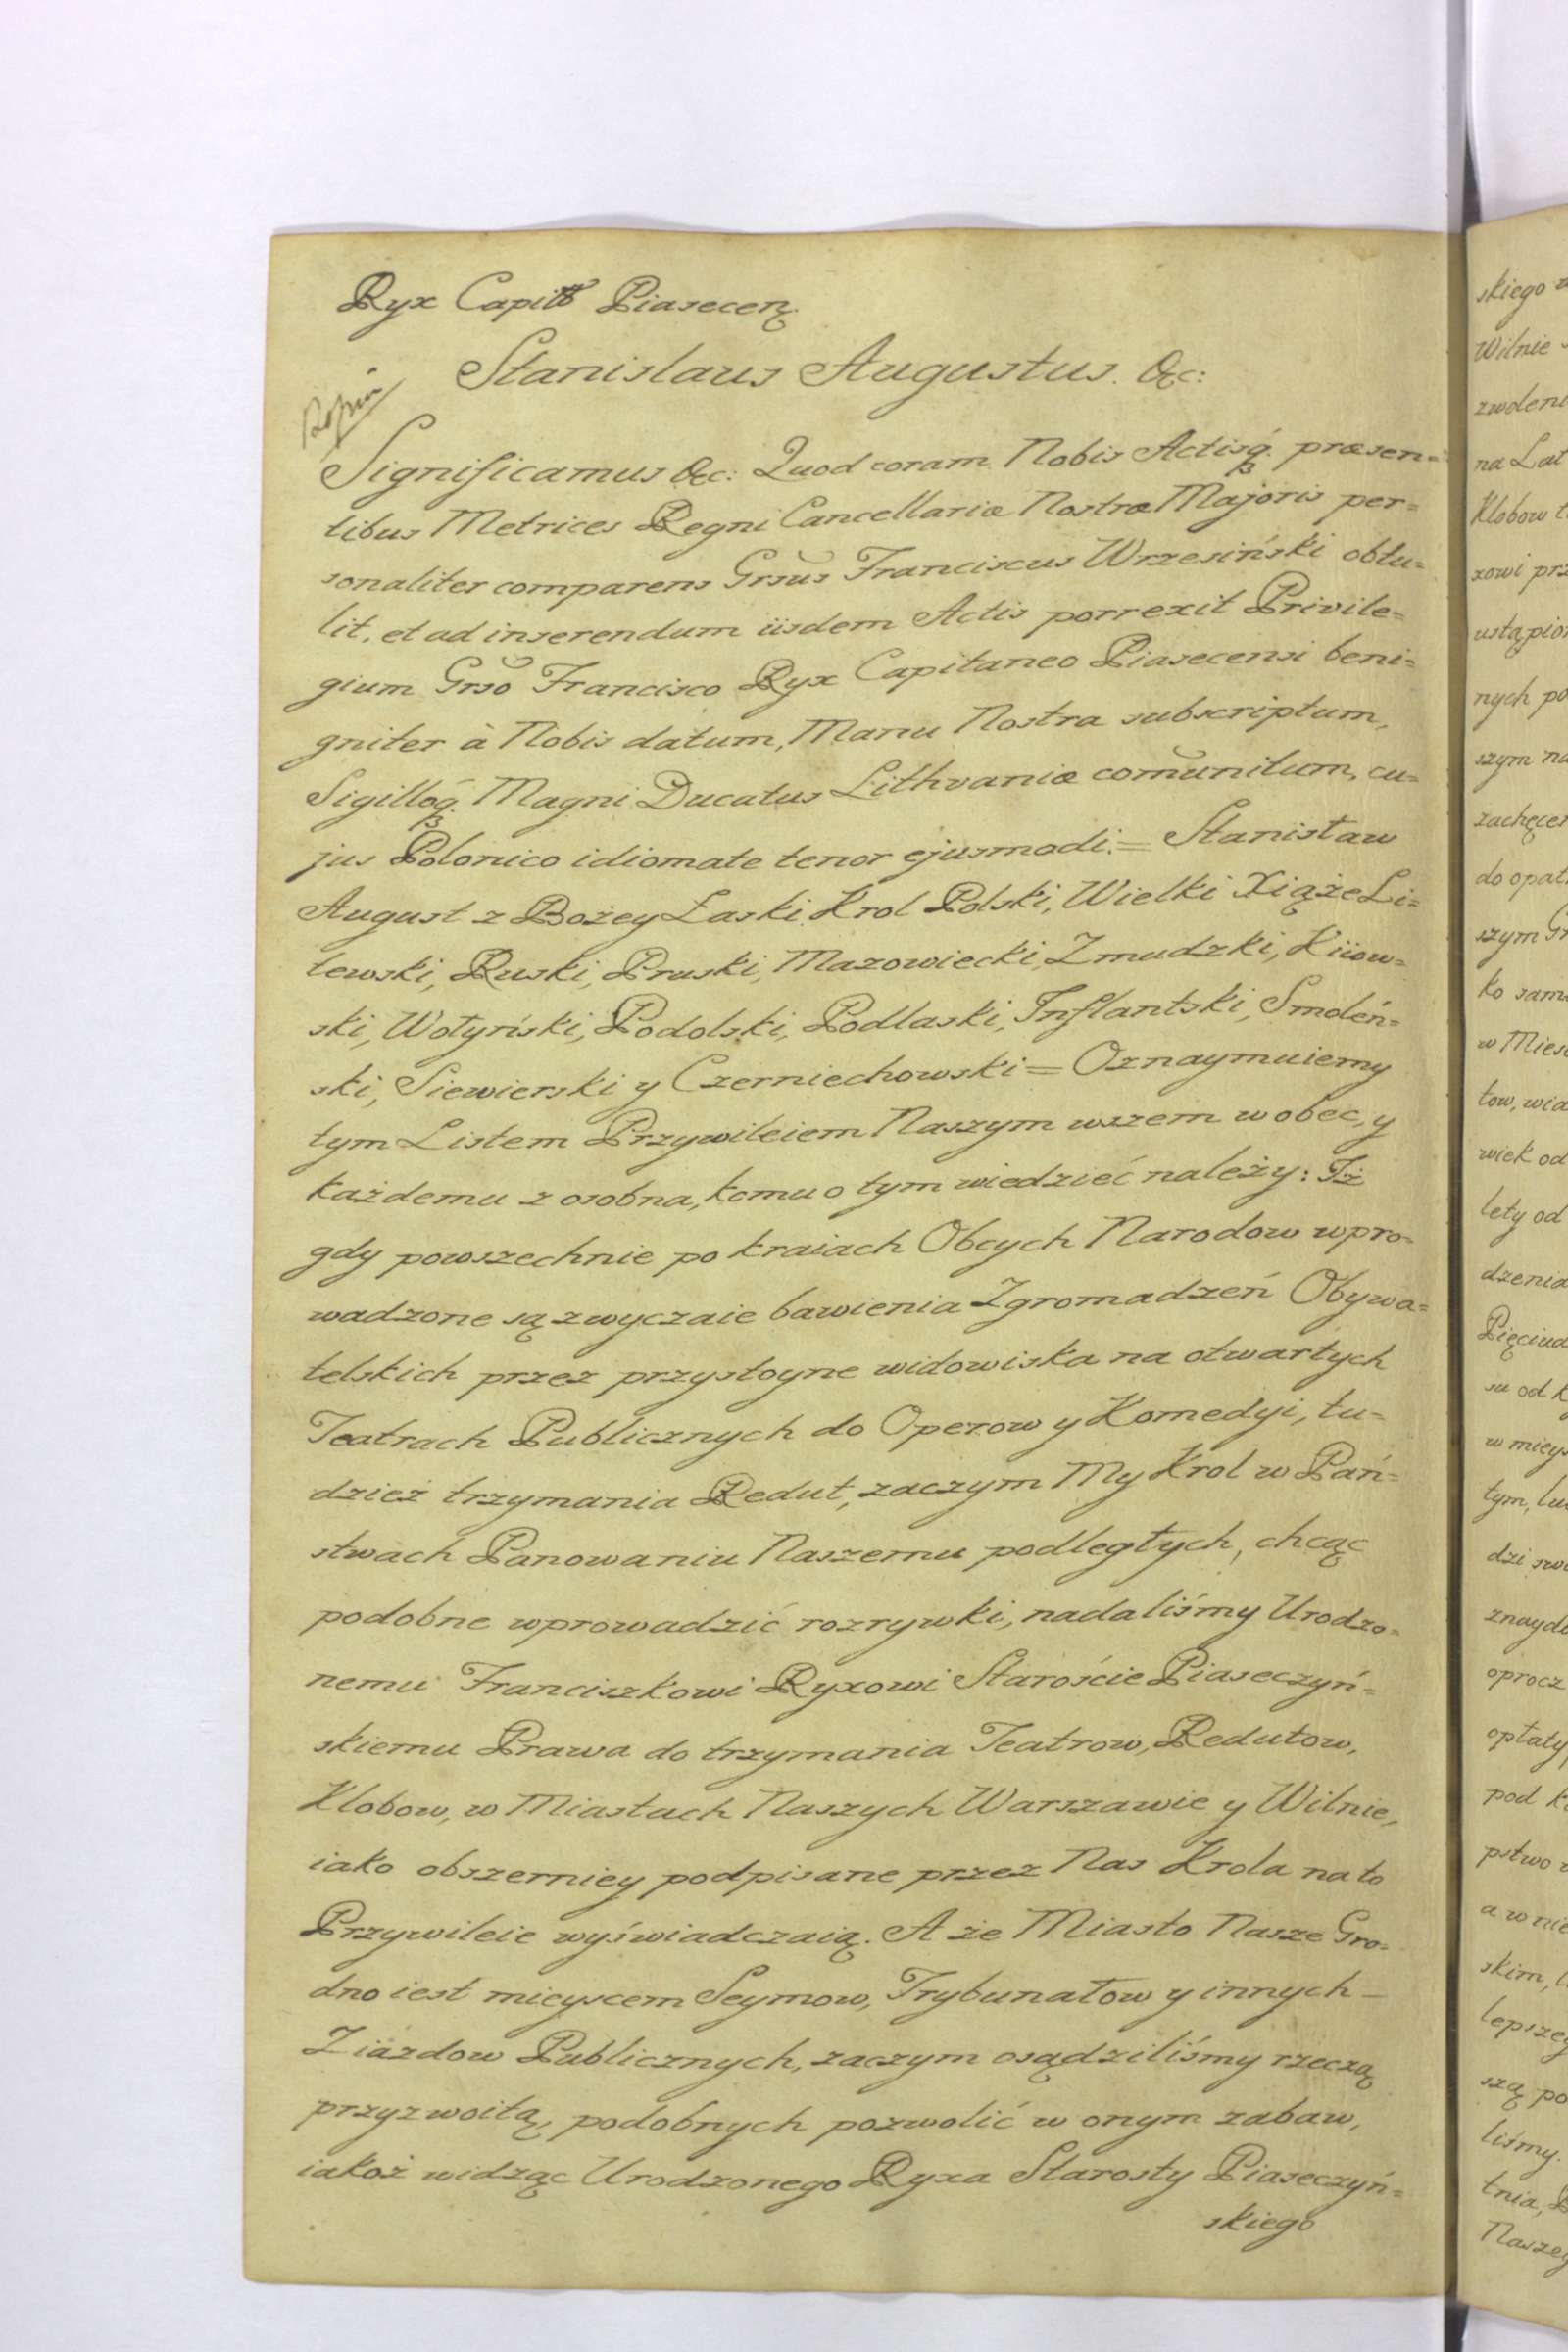 Ryx Capitō Piasecen.
Stanislaus Augustus. &c:
Significamus &c: Quod coram Nobis Actisq. præsen=
tibus Metrices Regni Cancellariæ Nostræ Majoris per=
sonaliter comparens Grsus Franciscus Wrzesiński obtu=
lit, et ad inserendum iisdem Actis porrexit Privile=
gium Grso Francisco Ryx Capitaneo Piasecensi beni=
gniter à Nobis datum, Manu Nostra subscriptum,
Sigilloq. Magni Ducatus Lithvaniæ com̃unitum, cu=
jus Polonico idiomate tenor ejusmodi.= Stanisław
August z Bożey Łaski Krol Polski, Wielki Xiąże Li=
tewski, Ruski, Pruski, Mazowiecki, Zmudzki, Kiiow=
ski, Wołyński, Podolski, Podlaski, Inflantski, Smoleń=
ski, Siewierski y Czerniechowski = Oznaymuiemy
tym Listem Przywileiem Naszym wszem w obec, y
każdemu z osobna, komu o tym wiedzieć należy: Iż
gdy powszechnie po kraiach Obcych Narodow wpro=
wadzone są zwyczaie bawienia Zgromadzeń Obywa=
telskich przez przystoyne widowiska na otwartych
Teatrach Publicznych do Operow y Komedyi, tu=
dzież trzymania Redut, zaczym My Krol w Pań=
stwach Panowaniu Naszemu podległych, chcąc
podobne wprowadzić rozrywki, nadaliśmy Urodzo=
nemu Franciszkowi Ryxowi Staroście Piaseczyń=
skiemu Prawa do trzymania Teatrow, Redutow,
Klobow, w Miastach Naszych Warszawie y Wilnie,
iako obszerniey podpisane przez Nas Krola na to
Przywileie wyświadczaią. A że Miasto Nasze Gro=
dno iest mieyscem Seymow, Trybunałow y innych –
Ziazdow Publicznych, zaczym osądziliśmy rzeczą
przyzwoitą, podobnych pozwolić w onym zabaw,
iakoż widząc Urodzonego Ryxa Starosty Piaseczyń=
skiego
skiego
Wilnie
zwoleni
na Lat
Klobow
xowi prz
ustąpio
nych po
szym na
zachęce
do opat
szym Gr
ko sam
w Mies
tow, wia
wiek od
lety od
dzenia
Pięciud
su od
w mieys
tym, lu
dzi swo
znaydu
oprocz
opłaty
pod
pstwo
a w nie
skim,
lepszey
szą po
liśmy.
tnia,
Naszey